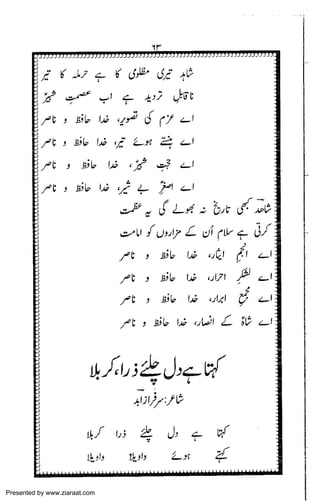 ۶۳
شاہد تیری مظلومی کا ہے حرملہ کا تیر
ناقابل تردید ہے اب عصمت شبیرؑ
اے عزم کی تصویر، خدا حافظ و ناصر
اے ہنستے ہوئے تیر، خدا حافظ و ناصر
اے حجت شبیرؑ، خدا حافظ و ناصر
اے اصغرؑ بے شیر، خدا حافظ و ناصر
شاھدؔ کبھی تاریخ نہ بھولے گی یہ عظمت
کرتی ہے سلام اُن کے مزاروں کو امامت
اے انجم ایثار، خدا حافظ و ناصر
اے لشکر احرار، خدا حافظ و ناصر
اے مجمع ابرار، خدا حافظ و ناصر
اے شاہؑ کے انصار، خدا حافظ و ناصر
کہتا ہے دل چلئے ذرا، کربلا
شاعر: سرفراز ابدؔ
کہتا ہے دل چلئے ذرا کربلا
کہتے ہوئے واویلا واویلا
Presented by www.ziaraat.com